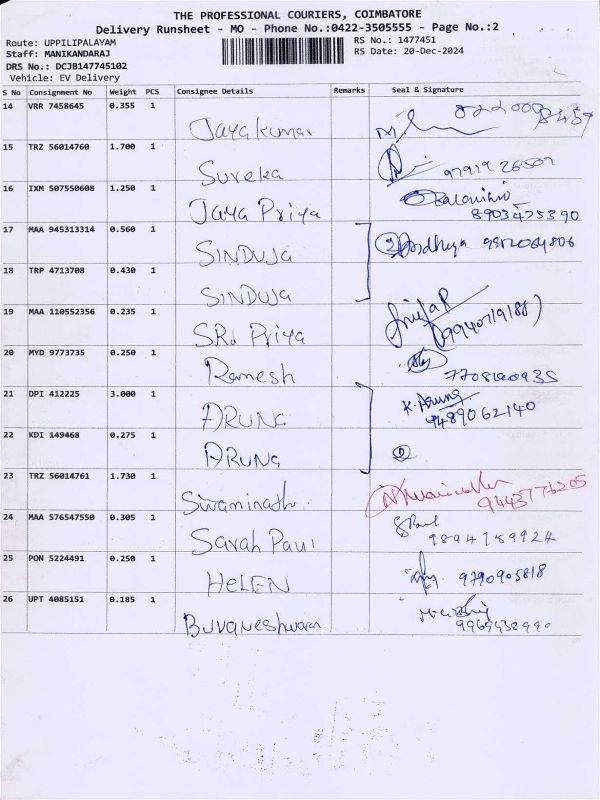 THE PROFESSIONAL COURIERS, COIMBATORE
Delivery Runsheet - MO - Phone No.:0422-3505555 - Page No.:2
Route: UPPILIPALAYAM RS No.: 1477451
Staff: MANIKANDARAJ RS Date: 20-Dec-2024
DRS No.: DCJB147745102
Vehicle: EV Delivery
S No Consignment No Weight PCS Consignee Details Remarks Seal & Signature
14 VRR 7458645 0.355 1
Jayakumar
15 TRZ 56014760 1.700 1
Sureka 9791926507
16 IXM 507550608 1.250 1
Jaya Priya 8903475390
17 MAA 945313314 0.560 1
SINDUJa 2
18 TRP 4713708 0.430 1
SINDUJa
19 MAA 110552356 0.235 1
SRi Priya
20 MYD 9773735 0.250 1
Ramesh
21 DPI 412225 3.000 1
ARUNa K. Aruna 9489062140
22 KDI 149468 0.275 1
ARUNa 2
23 TRZ 56014761 1.730 1
Sivaminath 9443776205
24 MAA 576547550 0.305 1
Sarah Paul S Paul 9894759924
25 PON 5224491 0.250 1
HeLEN 9790905818
26 UPT 4085151 0.185 1
Buvaneshwaran